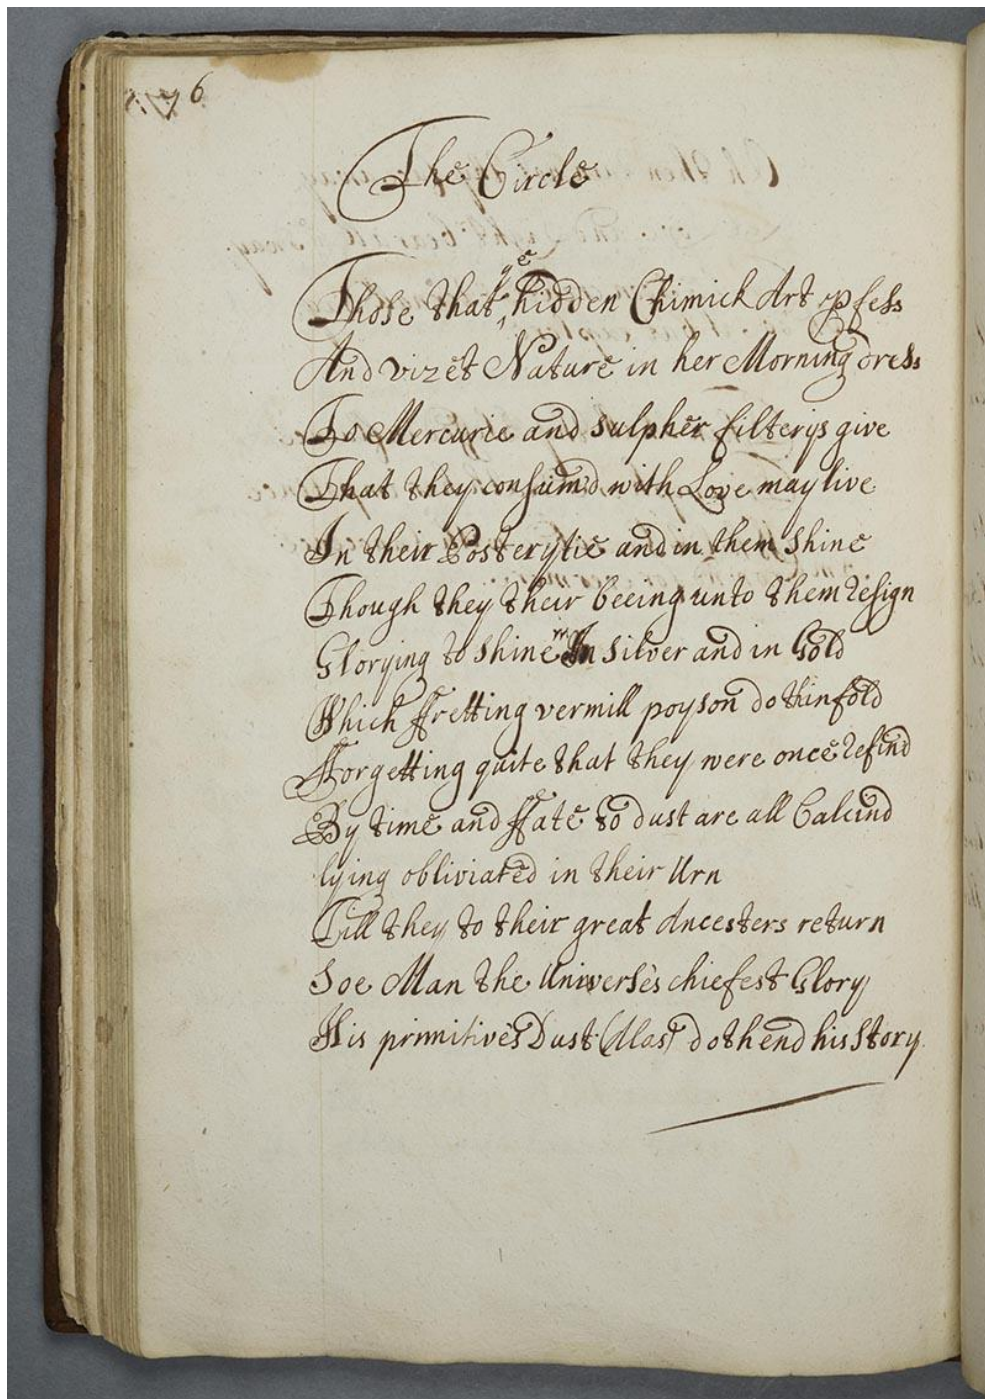 6
The Circle
Those that ye hidden Chimick Art pfess
And vizet Nature in her Morning dress
To Mercurie and sulpher filterys give
That they consum'd with Love may live
In their Posterytie and in them Shine
Though they their beeing unto them resign
Glorying to shine in silver and in Gold
Which ffretting vermill poyson doth infold
fforgetting quite that they were once refind
By time and ffate to dust are all Calcind
lying obliviated in their Urn
Till they to their great Ancesters return
Soe Man the Universe's chiefest Glory
His primitive's Dust (Alas) doth end his Story.